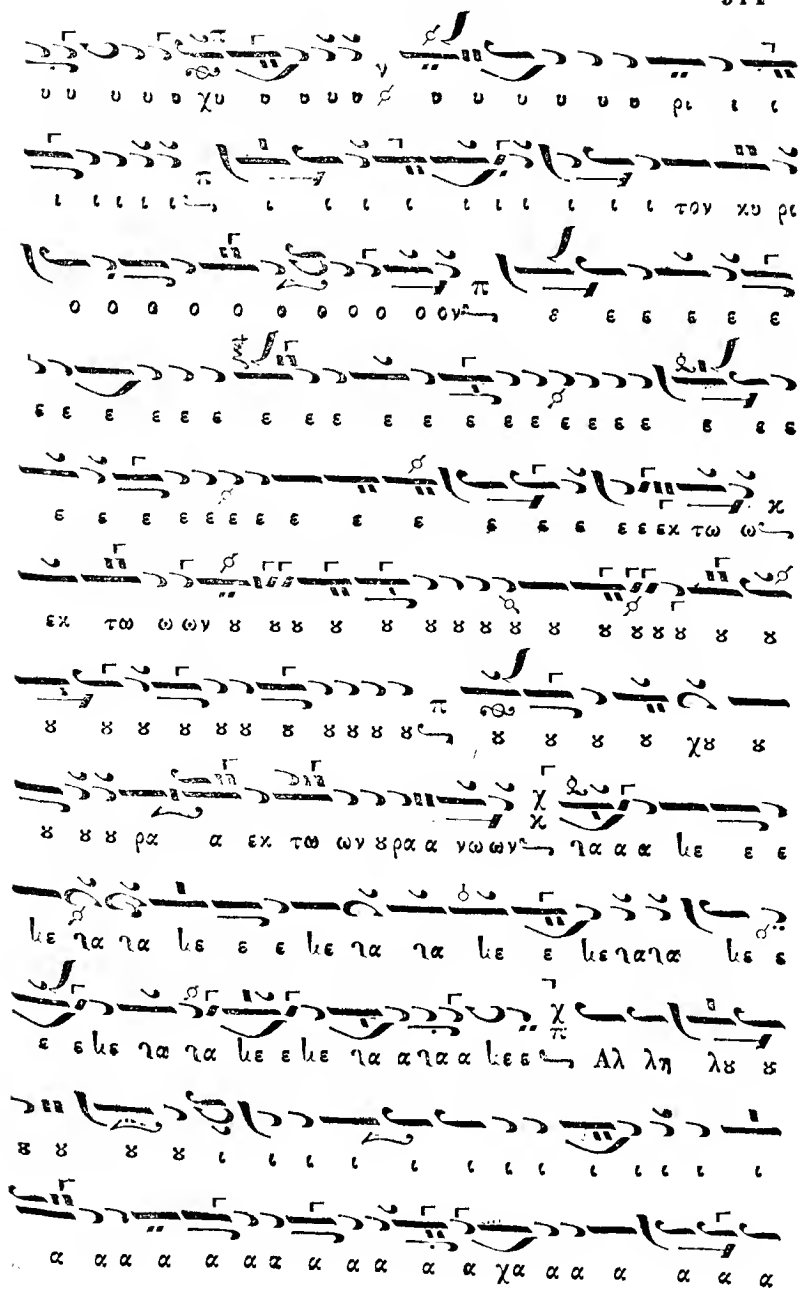 υ υ υ υ υ χυ υ υ υ υ υ υ υ υ υ υ υ ρι ι ι
ι ι ι ι ι ι ι ι ι ι ι ι ι ι ι τον κυ ρι
ο ο ο ο ο ο ο ο ο ο ον ε ε ε ε ε ε
ε ε ε ε ε ε ε ε ε ε ε ε ε ε ε ε ε ε ε ε ε
ε ε ε ε ε ε ε ε ε ε ε ε ε ε ε ε εκ τω ω
εκ τω ω ων ȣ ȣ ȣ ȣ ȣ ȣ ȣ ȣ ȣ ȣ ȣ ȣ ȣ ȣ ȣ ȣ ȣ
ȣ ȣ ȣ ȣ ȣ ȣ ȣ ȣ ȣ ȣ ȣ ȣ ȣ ȣ ȣ χȣ ȣ
ȣ ȣ ȣ ρα α εκ τω ων ȣρα α νω ων να α α νε ε ε
νε να να νε ε ε νε να να νε ε νε να να νε ε
ε ε νε να να νε ε νε να α να α νε ε Αλ λη λȣ ȣ
ȣ ȣ ȣ ȣ ι ι ι ι ι ι ι ι ι ι ι ι ι
α α α α α α α α α α α α α χα α α α α α α